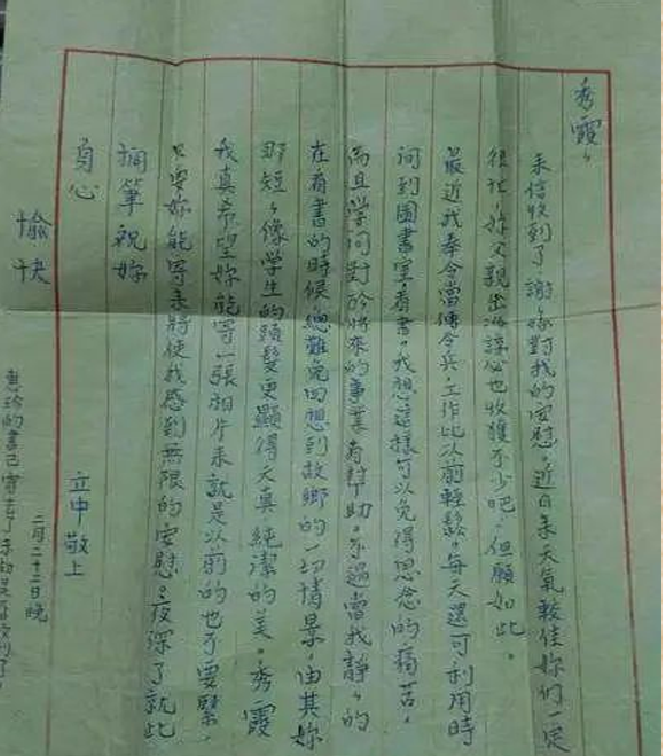 秀霞，
来信收到了 謝々妳對我的安慰。近日来天氣較佳妳们一定
很忙，妳又親出 也收獲不少吧。但願如此。
最近我奉令當傳令兵工作比以前輕鬆，每天還可利用時
间到圖書室看書。我想這樣可以免得思念的痛苦，
而且学问對於將來的事業有幫助。不過當我靜々的
在看書的時候總難免回想到故鄉的一切情景，由其妳
那短々像学生的頭髮更顯得天真純潔的美。秀霞
我真希望妳能寄一張相片来就是以前的也不要緊，
只要妳能寄来將使我感到無限的安慰。夜深了就此
擱筆祝妳
身心
愉快
立中敬上
二月二十二日晚
的書已寄去了